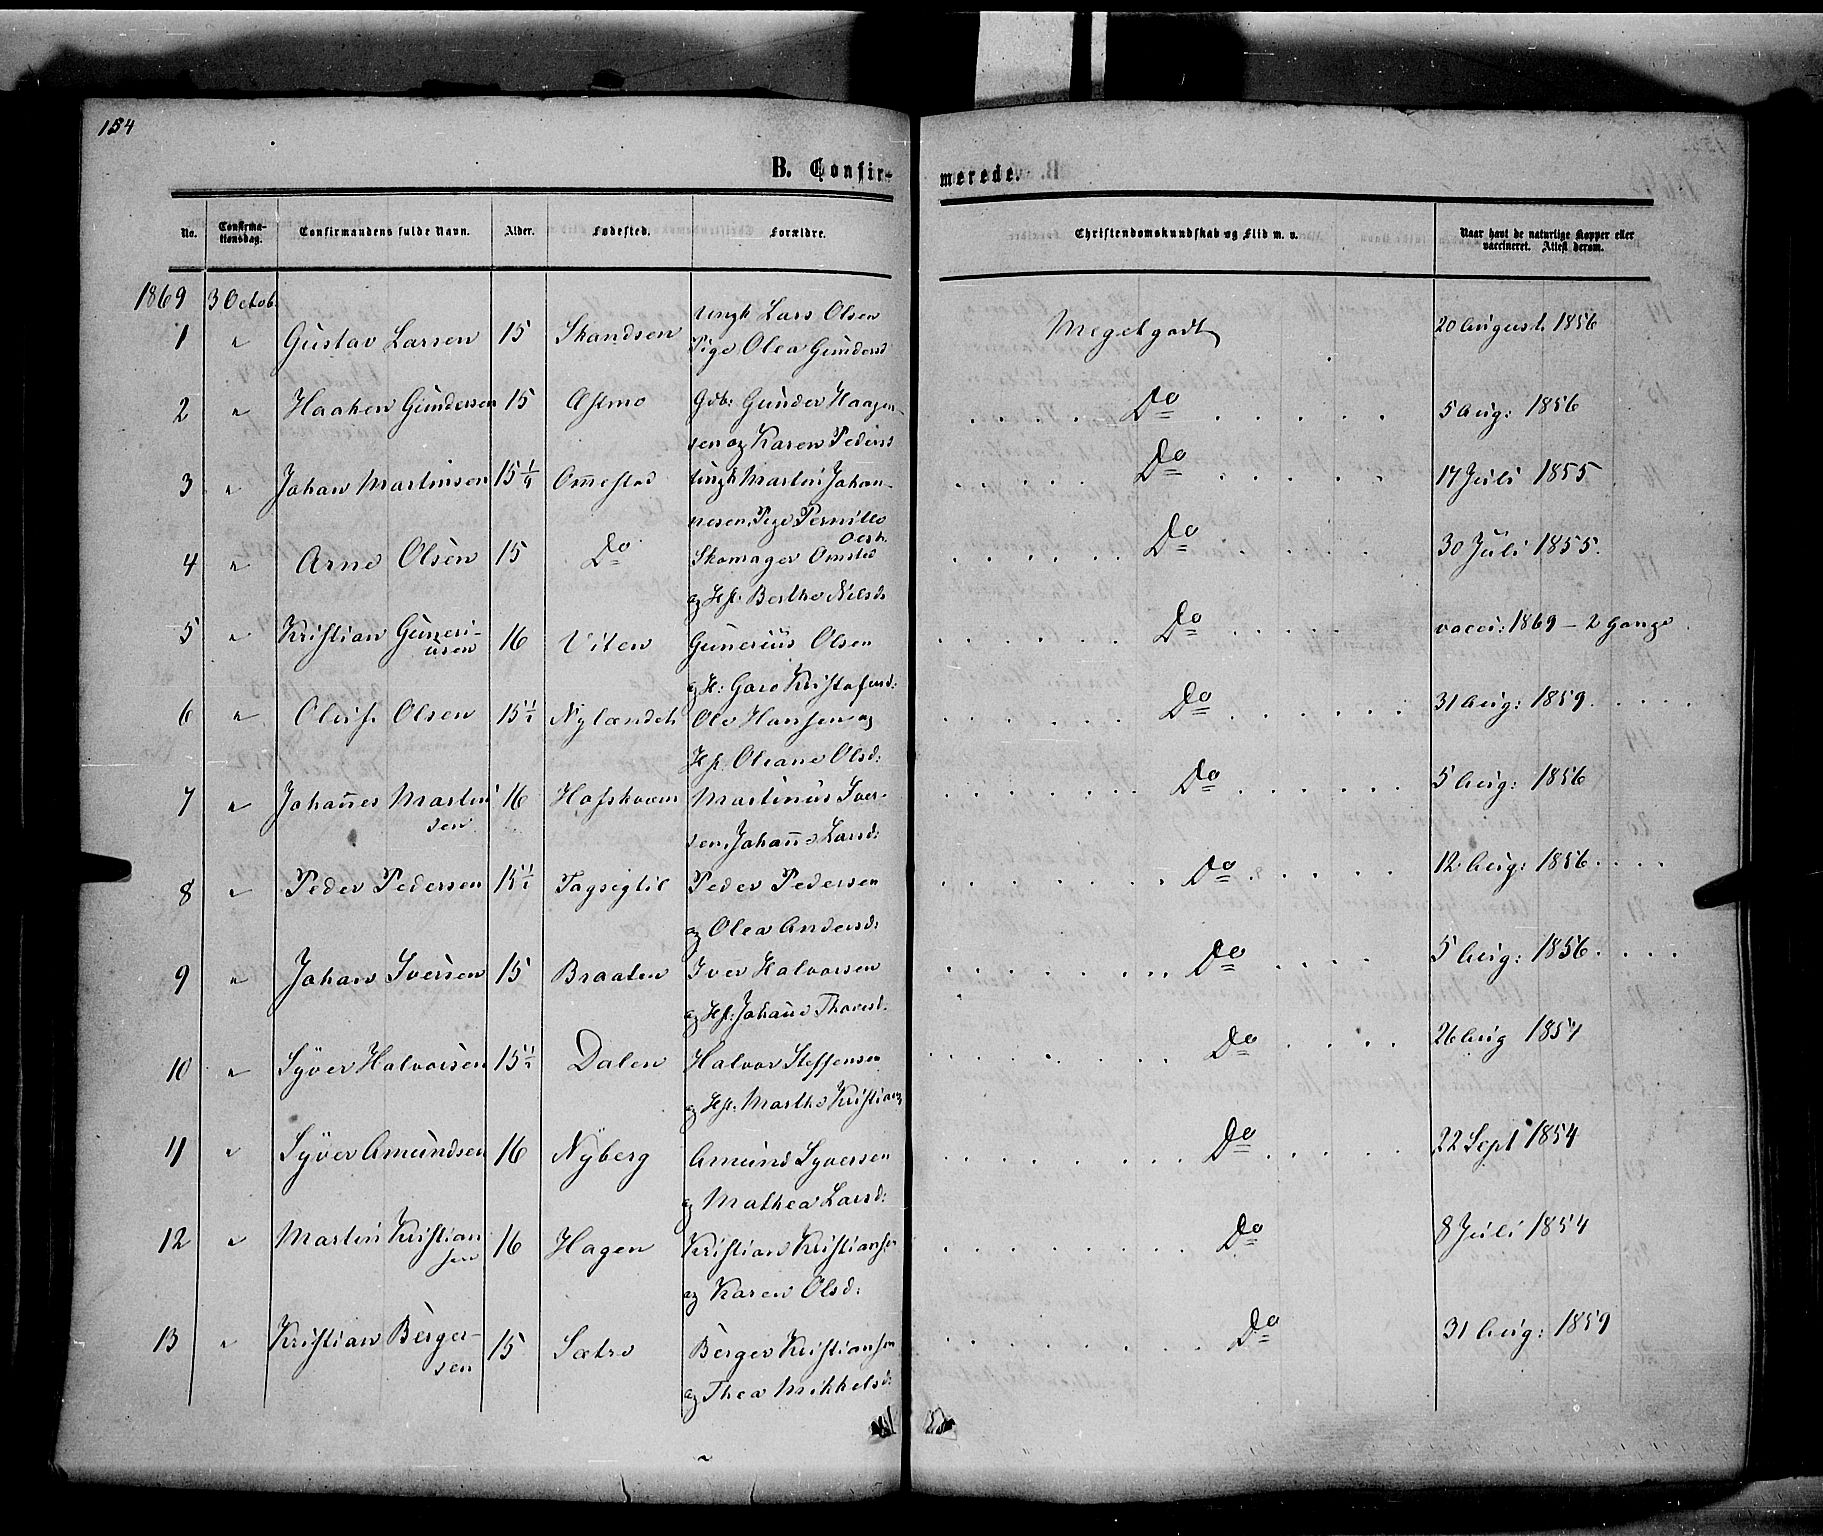 184
B. Confirmerede.
No. Confirmationsdag. Confirmandens fulde Navn. Alder. Fødested. Forældre. Christendomskundskab og Flid m. v. Naar havt de naturlige Kopper eller vaccineret. Attest derom.
1869 3 Octob.
1 " Gustav Larsen 15 Skandsen Ungk Lars Olsen Meget godt 20 August 1856
Pige Olea Gundersd
2 " Haaken Gundersen 15 Astmo Gdb: Gunder Haagen- Do 5 Aug: 1856
sen og Karen Pedersd
3 " Johan Martinsen 15 1/4 Ommestad Ungk Martin Johan- Do 17 Juli 1855
nesen, Pige Pernille
4 " Arne Olsen 15 Do Skomager Do 30 Juli 1855.
og H. Berthe Nilsd
5 " Kristian Guneri- 16 Viten Gunerius Olsen Do vacci: 1869 – 2 Gange
usen
og H: Kristofersd:
6 " Olsen 15 1/2 Nylændet Ole Hansen og Do 31 Aug: 1859
Oleane Olsd:
7 " Johannes Martin 16 Martinus Iver- Do 5 Aug: 1856
sen
sen, Johanne Larsd:
8 " Peder Pedersen 15 1/2 Peder Pedersen Do 12 Aug: 1856
og Olea Andersd:
9 " Johan Iversen 15 Braaten Iver Halvorsen Do 5 Aug: 1856
og H: Johanne Thoresd.
10 " Syver Halvorsen 15 1/2 Dalen Halvor Steffensen Do 26 Aug 1857
og H. Marthe Kristians
11 " Syver Amundsen 16 Nyberg Amund Syversen Do 22 Sept 1854
og Mathea Larsd:
12 " Martin Kristian 16 Hagen Kristian Kristiansen Do 8 Juli 1854
sen
og Karen Olsd:
13 " Kristian Berger- 15 Sætre Berger Kristiansen Do 31 Aug: 1859
sen
og Thea Mikkelsd: